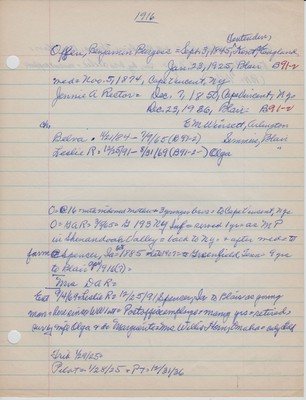 1916
Westwater,
Offen, Benjamin George = Sept. 3, 1845, Kent, England
Jan. 23, 1925, Blair B91-2
mar = Nov. 5, 1874, Cape Vincent, N.Y.
Jennie A Rector = Dec. 7, 1850, Cape Vincent, N.Y.
Dec. 22, 1936, Blair B91-2
ch E M Winsett, Arlington
Belva = 4/21/84 - 7/9/65 (B91-2) Blair
Leslie R = 12/25/91 - 3/31/69 (B91-2) - Olga "
O = @16 = with widowed mother & younger bros = to Cape Vincent, N.Y.
O = GAR = 3/65 = G 193 NY Inf = served 1 yr = as MP
in Shenandoah Valley = back to N.Y. = after mar = to
farm @ Spencer, Ia = 1885 = Greenfield, Tenn = 9 yrs
to Blair 1916(?) =
Mrs D.A.R. =
Leslie R = 12/25/91 Spencer, Ia. to Blair as young
man = WW I vet = Post office employe = many yrs = retired =
surv by wife Olga & da Marguerite = Mrs Willis Henn, Omaha = only child
Trib 1/29/25
Pilot = 1/28/25 + PT = 12/31/36